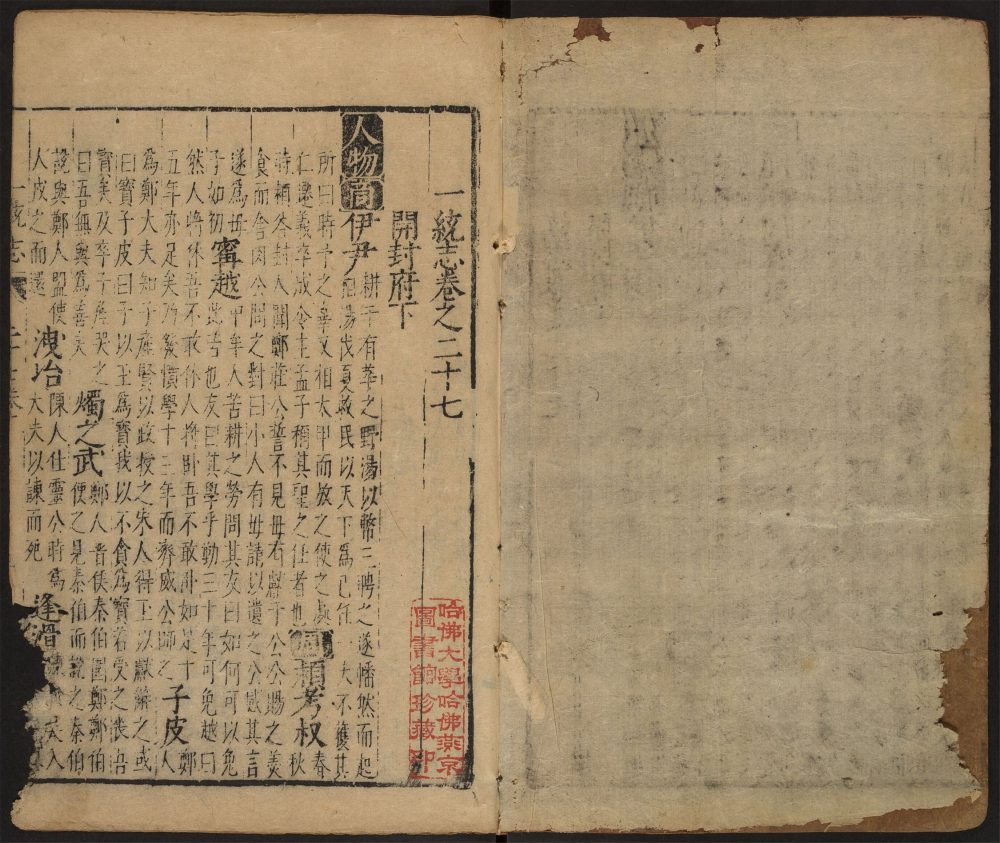 一統志卷之二十七
開封府下
人物 商 伊尹 耕于有莘之野湯以幣三聘之遂幡然而起
湯伐夏救民以天下為己任一夫不獲其
所曰時予之辜又相太甲而放之使之處
仁遷義卒成令主孟子稱其聖之任者也 潁考叔 春秋
時潁谷封人聞鄭莊公誓不見母有獻于公公賜之羹
食而舍肉公問之對曰小人有母請以遺之公感其言
遂為母
子如初 甯越 中牟人苦耕之勞問其友曰如何可以免
此苦也友曰其學乎勤三十年可免越曰
然人將休吾不敢休人將臥吾不敢臥如是十
五年亦足矣乃發憤學十三年而齊威公師之 子皮 鄭人
為鄭大夫知子產賢以政授之宋人得玉以獻辭之或
曰寶子皮曰子以玉為寶我以不貪為寶若受之喪吾
寶矣及卒子產哭之
曰吾無與為善矣 燭之武 鄭人晉侯秦伯圍鄭鄭伯
使之見秦伯而說之秦伯
說與鄭人盟使
人戍之而還 洩冶 陳人仕靈公時為
大夫以諫而死 逢滑 人
一統志 二十七卷
哈佛大學哈佛燕京
圖書館珍藏印